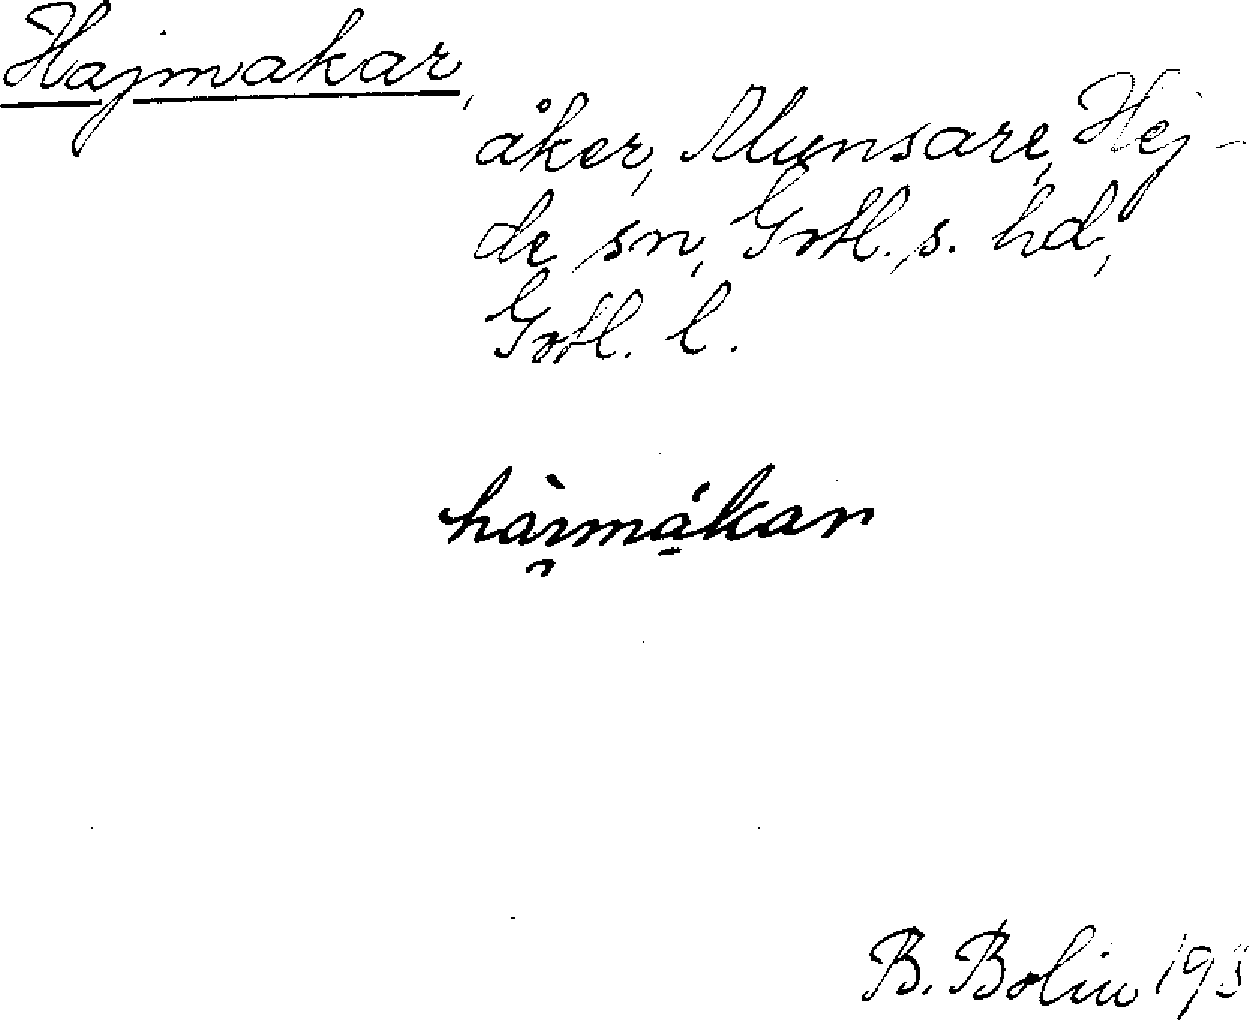 Hajmakar,
åker, Munsare, Hej-
de sn, Gotl. s. hd,
Gotl. l.
hài̯mákar
B. Bolin 193